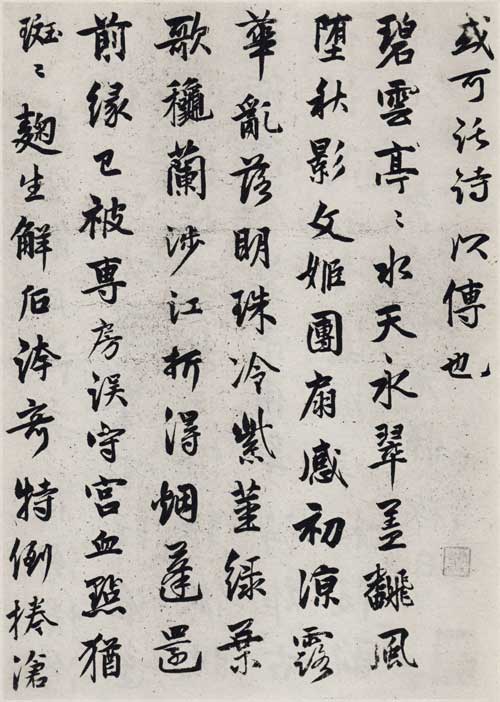 或可託詩以傳也
碧雲亭〻水天永翠盖飜風
堕秋影文姬團扇感初涼露
華亂落明珠冷紫莖緑葉
歌穐蘭涉江折得烟蓬還
前緣已被專房误守宮血點猶
斑〻麹生解后奇特倒捲滄